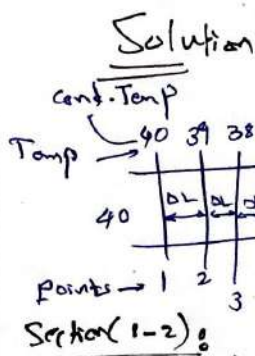 Solution
Cond. Temp
Temp → 40 39 38
40 ΔL ΔL
Points → 1 2 3
Section (1-2):